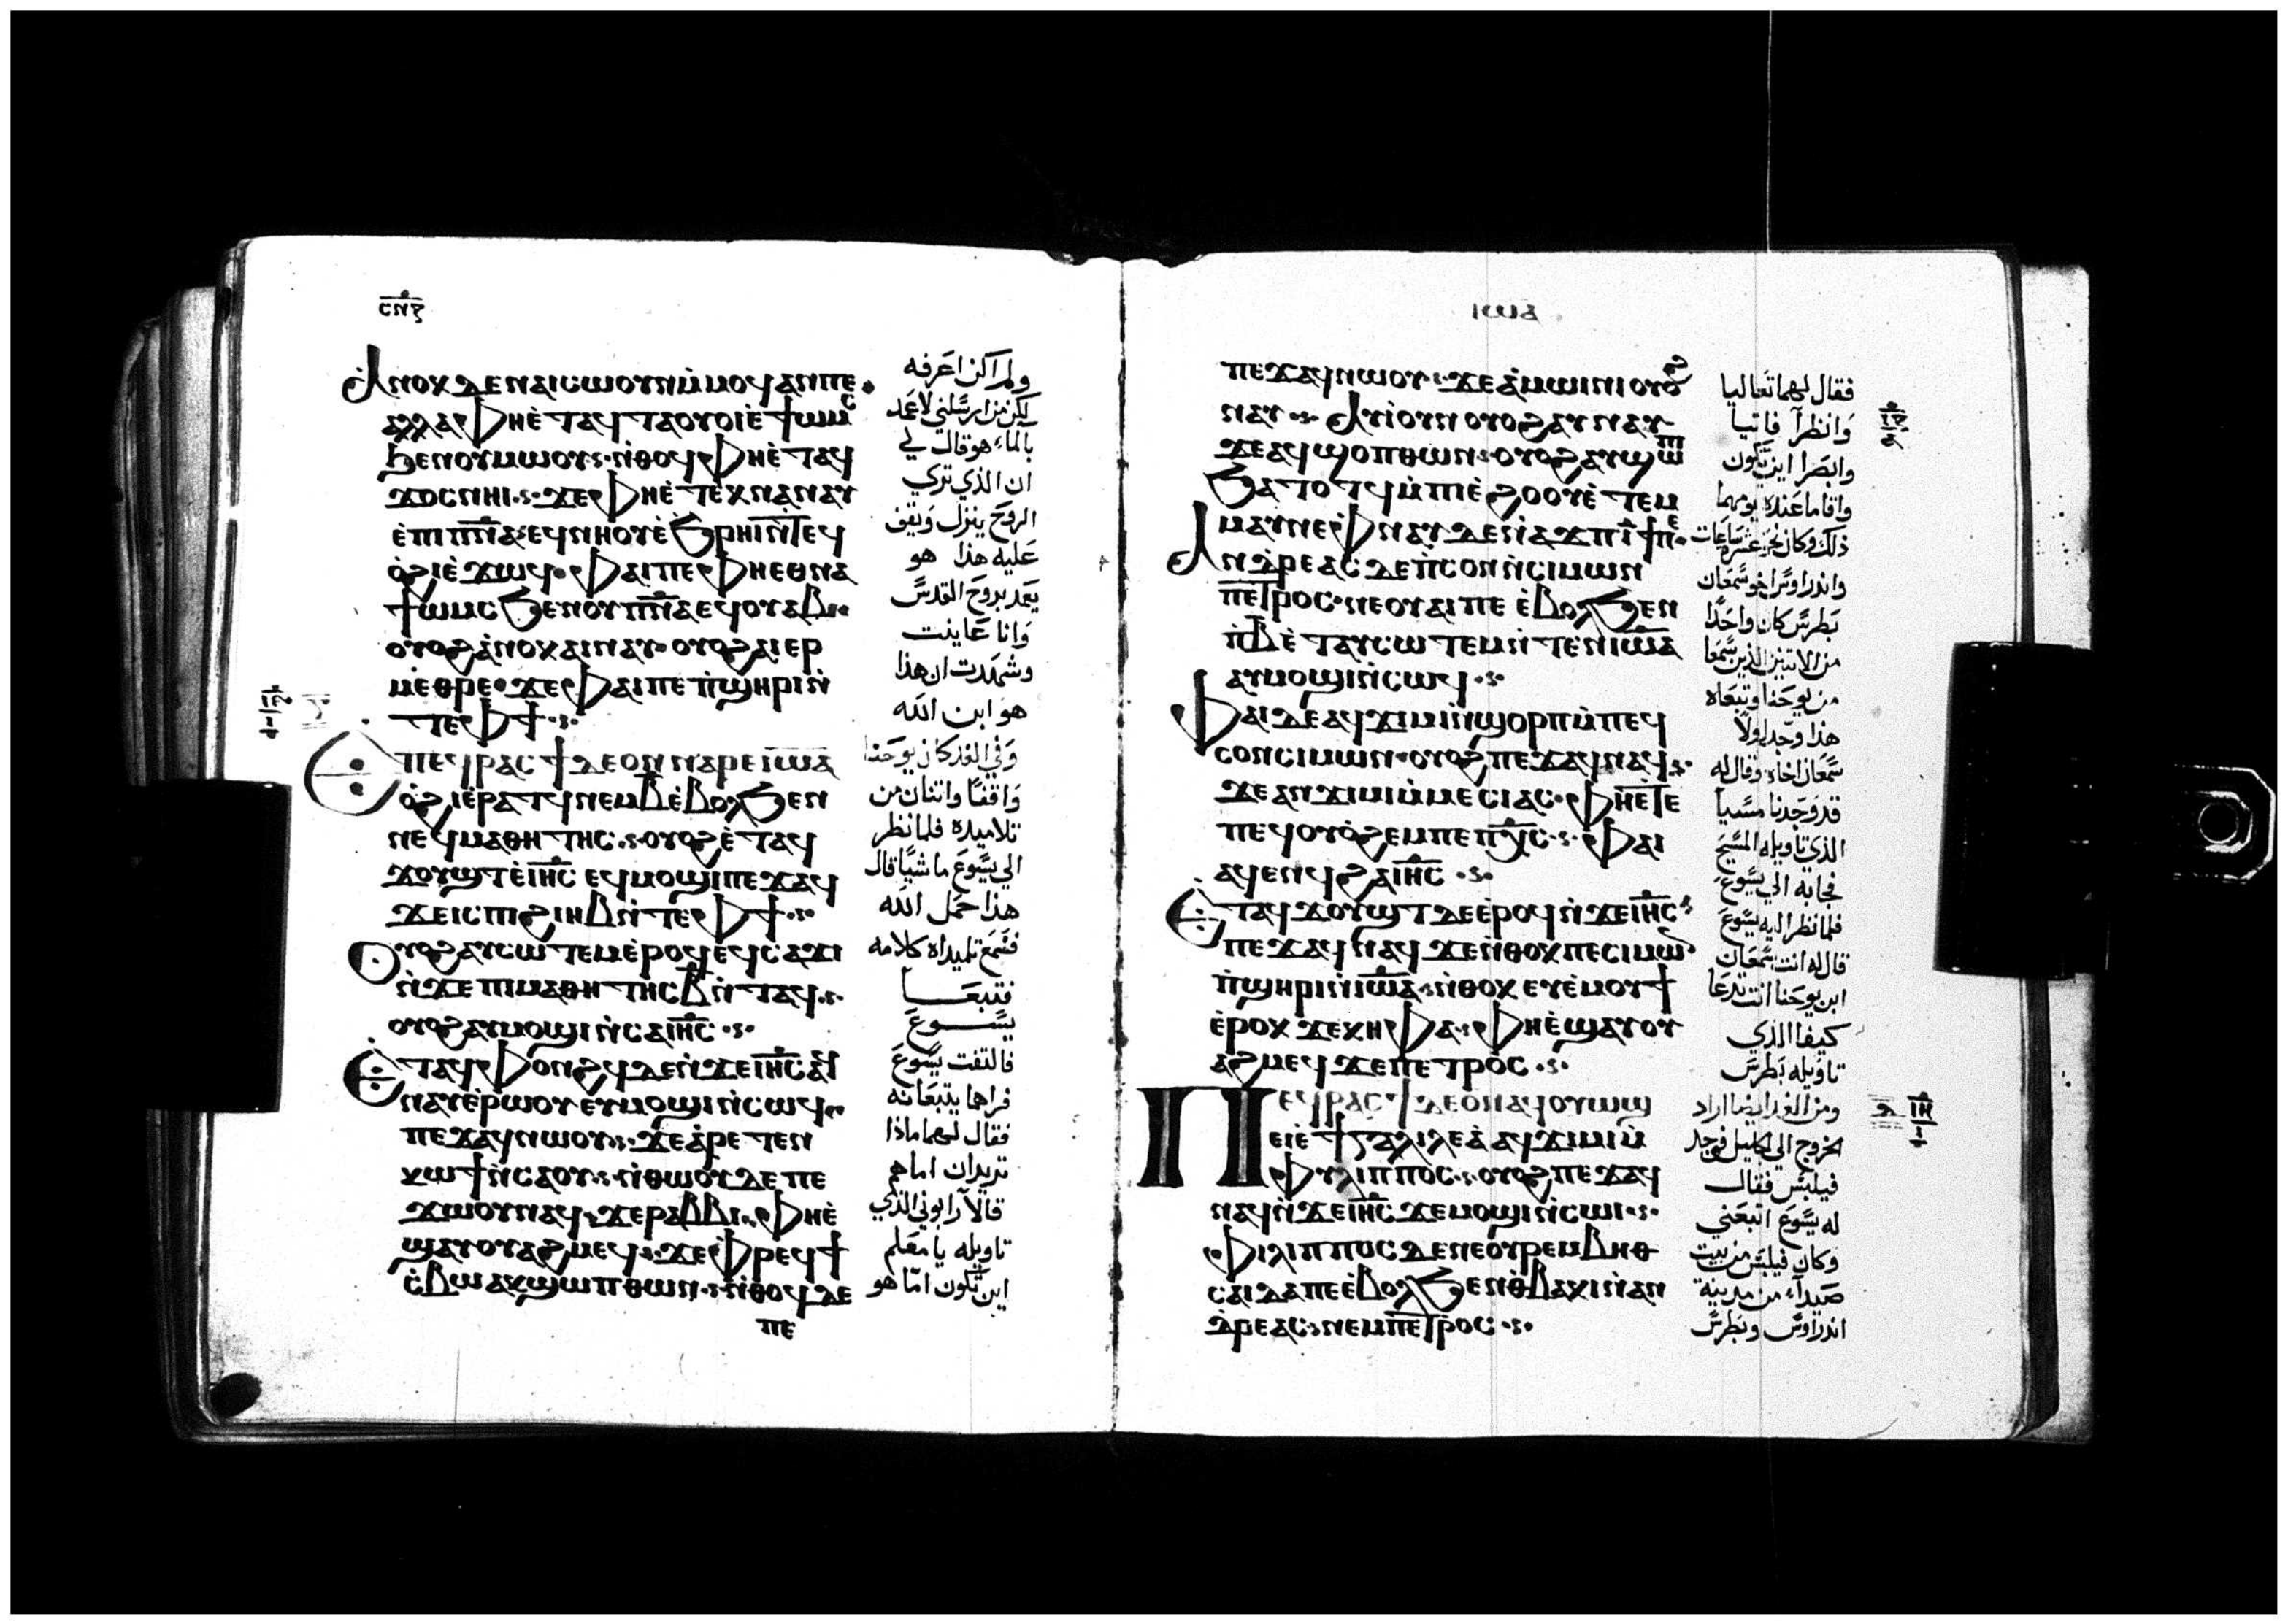 ⲥⲛⲋ
Ⲁⲛⲟⲕ ⲇⲉ ⲛⲁⲓⲥⲱⲟⲩⲛ ⲙ̀ⲙⲟϥ ⲁⲛ ⲡⲉ
ⲁⲗⲗⲁ ⲫⲏⲉ̀ⲧⲁϥⲧⲁⲟⲩⲟⲓ ⲉ̀ϯⲱⲙⲥ
ϧⲉⲛ ⲟⲩⲙⲱⲟⲩ ⲛ̀ⲑⲟϥ ⲫⲏⲉ̀ⲧⲁϥ
ϫⲟⲥ ⲛⲏⲓ ϫⲉ ⲫⲏⲉ̀ⲧⲉⲭⲛⲁⲛⲁⲩ
ⲉ̀ⲡⲓⲡ̅ⲛ̅ⲁ̅ ⲉϥⲛⲏⲟⲩ ⲉ̀ϧⲣⲏⲓ ⲛ̀ⲧⲉϥ
ⲟ̀ϩⲓ ⲉ̀ϫⲱϥ ⲫⲁⲓ ⲡⲉ ⲫⲏⲉⲑⲛⲁ
ϯⲱⲙⲥ ϧⲉⲛ ⲟⲩⲡ̅ⲛ̅ⲁ̅ ⲉϥⲟⲩⲁⲃ
ⲟⲩⲟϩ ⲁ̀ⲛⲟⲕ ⲁⲓⲛⲁⲩ ⲟⲩⲟϩ ⲁⲓⲉⲣ
ⲙⲉⲑⲣⲉ ϫⲉ ⲫⲁⲓ ⲡⲉ ⲡ̀ϣⲏⲣⲓ ⲛ̀
ⲧⲉ ⲫϯ
Ⲉⲡⲉϥⲣⲁⲥϯ ⲇⲉ ⲟⲛ ⲛⲁⲣⲉ ⲓ̅ⲱ̅ⲁ̅
ⲟ̀ϩⲓ ⲉ̀ⲣⲁⲧϥ ⲛⲉⲙ ⲃ ⲉ̀ⲃⲟⲗ ϧⲉⲛ
ⲛⲉϥⲙⲁⲑⲏⲧⲏⲥ ⲟⲩⲟϩ ⲉ̀ⲧⲁϥ
ϫⲟⲩϣⲧ ⲉ̀ⲓ̅ⲏ̅ⲥ̅ ⲉϥⲙⲟϣⲓ ⲡⲉϫⲁϥ
ϫⲉ ⲓⲥ ⲡⲓϩⲓⲏⲃ ⲛ̀ⲧⲉ ⲫϯ
Ⲟⲩⲟϩ ⲁⲩⲥⲱⲧⲉⲙ ⲉ̀ⲣⲟϥ ⲉϥⲥⲁϫⲓ
ⲛ̀ϫⲉ ⲡⲓⲙⲁⲑⲏⲧⲏⲥ ⲃ ⲛ̀ⲧⲁϥ
ⲟⲩⲟϩ ⲁⲩⲙⲟϣⲓ ⲛ̀ⲥⲁ ⲓ̅ⲏ̅ⲥ̅
Ⲉ̀ⲧⲁϥⲫⲟⲛϩϥ ⲇⲉ ⲛ̀ϫⲉ ⲓ̅ⲏ̅ⲥ̅ ⲁϥ
ⲛⲁⲩ ⲉ̀ⲣⲱⲟⲩ ⲉⲩⲙⲟϣⲓ ⲛ̀ⲥⲱϥ
ⲡⲉϫⲁϥ ⲛⲱⲟⲩ ϫⲉ ⲁ̀ⲣⲉⲧⲉⲛ
ⲕⲱϯ ⲛ̀ⲥⲁ ⲟⲩ ⲛ̀ⲑⲱⲟⲩ ⲇⲉ ⲡⲉ
ϫⲱⲟⲩ ⲛⲁϥ ϫⲉ ⲣⲁⲃⲃⲓ ⲫⲏⲉ̀
ϣⲁⲩⲟⲩⲁϩⲙⲉϥ ϫⲉ ⲫⲣⲉϥϯ
ⲥ̀ⲃⲱ ⲁⲕϣⲱⲡ ⲑⲱⲛ ⲛ̀ⲑⲟϥ ⲇⲉ
ⲡⲉ
ولم اكن اعرفه
لكن من ارسلني لاعمد
بالماء هو قال لي
ان الذي تري
الروح ينزل ويقف
عليه هذا هو
يعمد بروح القدس
وانا عاينت
وشهدت ان هذا
هو ابن الله
وفي الغد كان يوحنا
واقفا واثنان من
تلاميذه فلما نظر
الي يسوع ماشيا قال
هذا حمل الله
فسمع تلميذاه كلامه
فتبعا
يسوع
فالتفت يسوع
فراهما يتبعانه
فقال لهما ماذا
تريدان اما هم
قالا رابوني الذي
تاويله يا معلم
اين تكون اما هو
ⲓⲱⲁ
ⲡⲉϫⲁϥ ⲛⲱⲟⲩ ϫⲉ ⲁ̀ⲙⲱⲓⲛⲓ ⲟⲩⲟϩ
ⲛⲁⲩ Ⲁⲩⲓ̀ ⲟⲩⲛ ⲟⲩⲟϩ ⲁⲩⲛⲁⲩ
ϫⲉ ⲁϥϣⲟⲡ ⲑⲱⲛ ⲟⲩⲟϩ ⲁⲩϣⲱⲡⲓ
ϧⲁⲧⲟⲧϥ ⲙ̀ⲡⲓⲉ̀ϩⲟⲟⲩ ⲉ̀ⲧⲉⲙ
ⲙⲁⲩ ⲛⲉ ⲫⲛⲁⲩ ⲇⲉ ⲛ̀ⲁϫⲡ ⲓ̅ ϯ ⲡⲉ
Ⲁⲛⲇⲣⲉⲁⲥ ⲇⲉ ⲡ̀ⲥⲟⲛ ⲛ̀ⲥⲓⲙⲱⲛ
ⲡⲉⲧⲣⲟⲥ ⲛⲉ ⲟⲩⲁⲓ ⲡⲉ ⲉ̀ⲃⲟⲗ ϧⲉⲛ
ⲡⲓⲃ ⲉ̀ⲧⲁⲩⲥⲱⲧⲉⲙ ⲛ̀ⲧⲉⲛ ⲓ̅ⲱ̅ⲁ̅
ⲁⲩⲙⲟϣⲓ ⲛ̀ⲥⲱϥ
Ⲫⲁⲓ ⲇⲉ ⲁϥϫⲓⲙⲓ ⲛ̀ϣⲟⲣⲡ ⲙ̀ⲡⲉϥ
ⲥⲟⲛ ⲥⲓⲙⲱⲛ ⲟⲩⲟϩ ⲡⲉϫⲁϥ ⲛⲁϥ
ϫⲉ ⲁⲛϫⲓⲙⲓ ⲙ̀ⲙⲉⲥⲓⲁⲥ ⲫⲏⲉ̀ⲧⲉ
ⲡⲉϥⲟⲩⲱϩⲉⲙ ⲡⲉ ⲡ̅ⲭ̅ⲥ̅ ⲫⲁⲓ
ⲁϥⲉⲛϥ ϩⲁ ⲓ̅ⲏ̅ⲥ̅
Ⲉ̀ⲧⲁϥϫⲟⲩϣⲧ ⲇⲉ ⲉ̀ⲣⲟϥ ⲛ̀ϫⲉ ⲓ̅ⲏ̅ⲥ̅
ⲡⲉϫⲁϥ ⲛⲁϥ ϫⲉ ⲛ̀ⲑⲟⲕ ⲡⲉ ⲥⲓⲙⲱⲛ
ⲡ̀ϣⲏⲣⲓ ⲛ̀ⲓ̅ⲱ̅ⲁ̅ ⲛ̀ⲑⲟⲕ ⲉⲩⲉ̀ⲙⲟⲩϯ
ⲉ̀ⲣⲟⲕ ϫⲉ ⲕⲏⲫⲁ ⲫⲏⲉ̀ϣⲁⲩⲟⲩ
ⲁϩⲙⲉϥ ϫⲉ ⲡⲉⲧⲣⲟⲥ
Ⲡⲉϥⲣⲁⲥϯ ⲇⲉ ⲟⲛ ⲁϥⲟⲩⲱϣ
ⲉⲓ̀ ⲉ̀ϯⲅⲁⲗⲓⲗⲉⲁ̀ ⲁϥϫⲓⲙⲓ ⲙ̀
ⲫⲩⲗⲓⲡⲡⲟⲥ ⲟⲩⲟϩ ⲡⲉϫⲁϥ
ⲛⲁϥ ⲛ̀ϫⲉ ⲓ̅ⲏ̅ⲥ̅ ϫⲉ ⲙⲟϣⲓ ⲛ̀ⲥⲱⲓ
ⲫⲓⲗⲓⲡⲡⲟⲥ ⲇⲉ ⲛⲉ ⲟⲩⲣⲉⲙ ⲃⲏⲑ
ⲥⲁⲓⲇⲁ ⲡⲉ ⲉ̀ⲃⲟⲗ ϧⲉⲛ ⲑ̀ⲃⲁⲕⲓ ⲛ̀ⲁⲛ
ⲇⲣⲉⲁⲥ ⲛⲉⲙ ⲡⲉⲧⲣⲟⲥ
فقال لهما تعاليا
وانظرا فاتيا
وابصرا اين تكون
واقاما عنده يومهما
ذلك وكان نحو عشرة ساعات
واندراوس اخو سمعان
بطرس كان واحدا
من الاثنين الذين سمعا
من يوحنا وتبعاه
هذا وجد اولا
سمعان اخاه وقال له
قد وجدنا مسيا
الذي تاويله المسيح
فجا به الي يسوع
فلما نظر اليه يسوع
قال له انت سمعان
ابن يوحنا انت تدعا
كيفا الذي
تاويله بطرس
ومن الغد ايضا اراد
الخروج الي الجليل فوجد
فيلبس فقال
له يسوع اتبعني
وكان فيلبس من بيت
صيدا من مدينة
اندراوس وبطرس